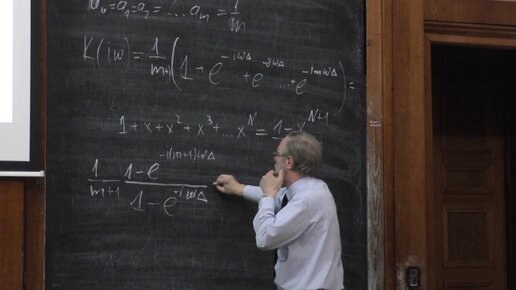 a₀=a₁=a₂=...aₘ=1/m
K(iω)=1/(m+1)(1+e^(-iωΔ)+e^(-2iωΔ)...+e^(-imωΔ))=
1+x+x²+x³+...x^N=1-x^(N+1)
1/(m+1) (1-e^(-i(m+1)ωΔ))/(1-e^(-iωΔ))